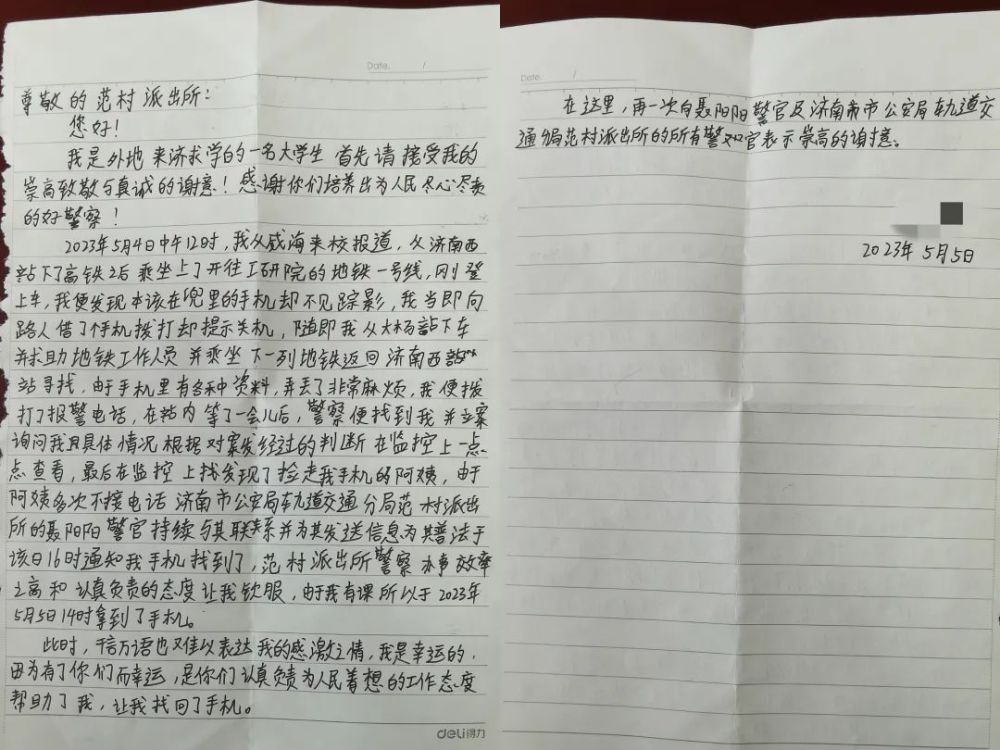 Date. /
尊敬的范村派出所：
您好！
我是外地来济求学的一名大学生 首先请接受我的
崇高致敬与真诚的谢意！感谢你们培养出为人民尽心尽责
的好警察！
2023年5月4日中午12时，我从威海来校报道，从济南西
站下了高铁之后乘坐上了开往工研院的地铁一号线，刚登
上车，我便发现本该在兜里的手机却不见踪影，我当即向
路人借了个手机拨打却提示关机，随即我从大杨站下车
并求助地铁工作人员并乘坐下一列地铁返回济南西
站寻找，由于手机里有各种资料，弄丢了非常麻烦，我便拨
打了报警电话，在站内等了一会儿后，警察便找到我并立案
询问我具体情况根据对案发经过的判断在监控上一点
点查看，最后在监控上找发现了捡走我手机的阿姨，由于
阿姨多次不接电话 济南市公安局轨道交通分局范村派出
所的聂阳阳警官持续与其联系并为其发送信息为其普法于
该日16时通知我手机找到了，范村派出所警察办事效率
之高和认真负责的态度让我钦服，由于我有课所以于2023年
5月5日14时拿到了手机。
此时，千言万语也难以表达我的感激之情，我是幸运的，
因为有了你们而幸运，是你们认真负责为人民着想的工作态度
帮助了我，让我找回了手机。
deli得力
Date. /
在这里，再一次向聂阳阳警官及济南市市公安局轨道交
通分局范村派出所的所有警官表示崇高的谢意。
2023年5月5日